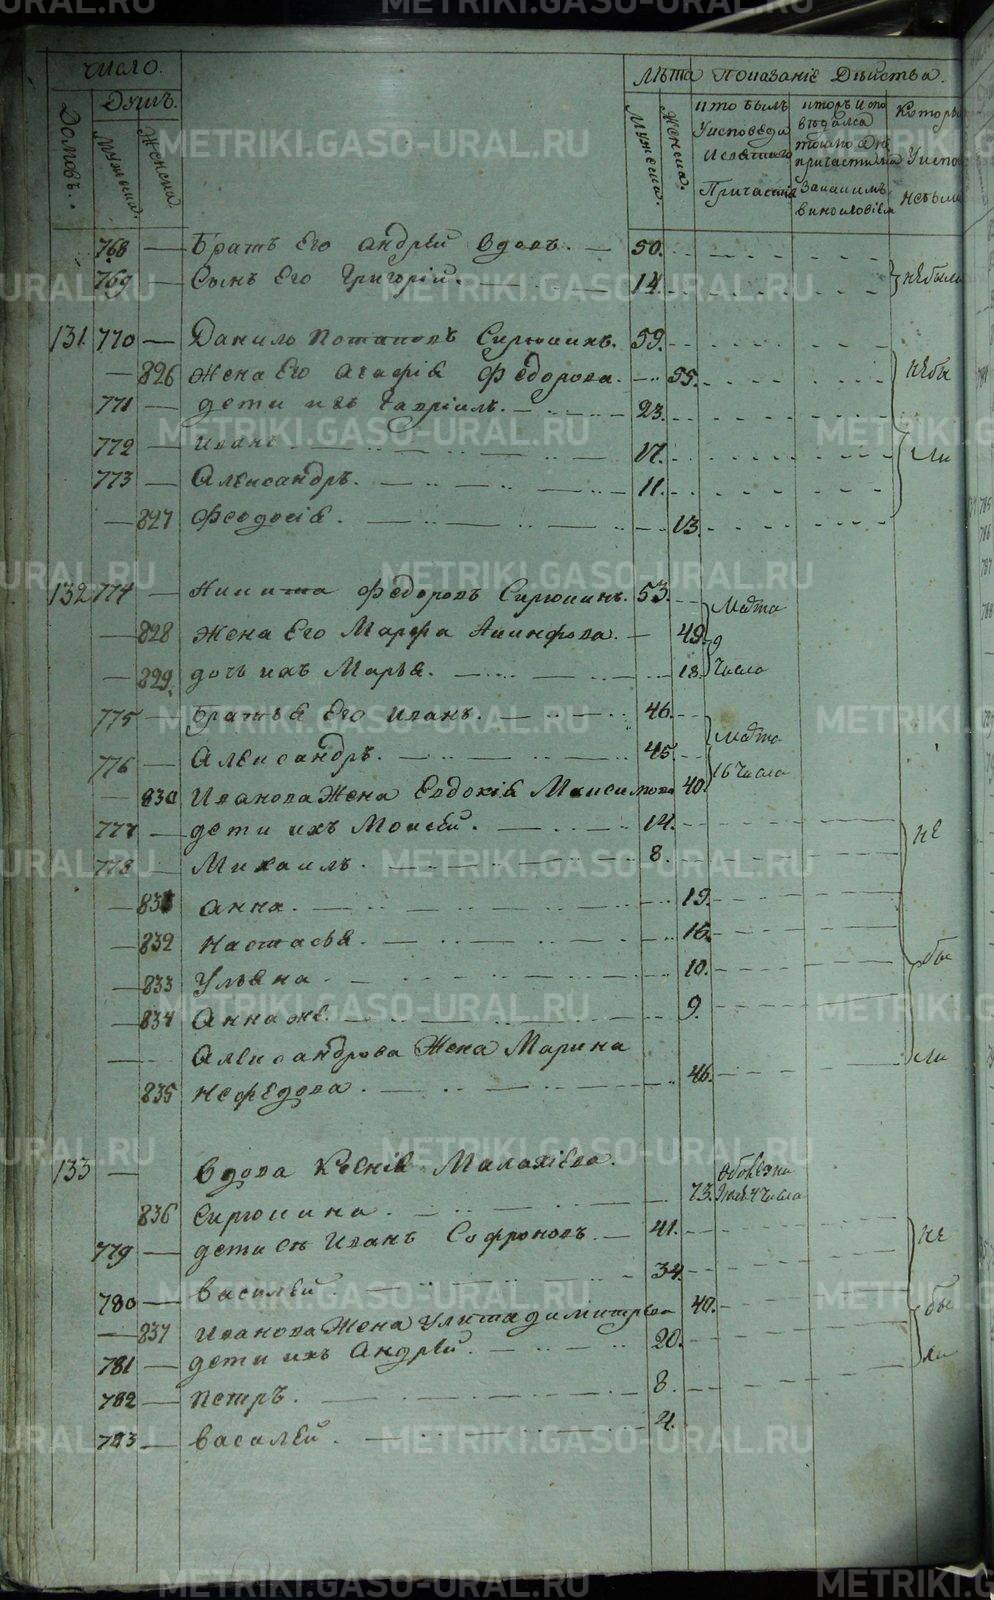 Число
Лѣта Показанiе Дѣйства.
Душъ.
Домовъ.
Мужеска.
Женска.
Мужеска.
Женска.
кто былъ
У исповеди
И святаго
Причастия
768 — Братъ Его Андрѣй Вдовъ. — 50.
769 — Сынъ Его Григорiй. 14. небыли
131 770 — Данило Потаповъ Сирюкинъ. 59.
— 826 Жена Его Агафiя Федорова. 55. небы
771 — Дети ихъ Гаврiилъ. 23.
772 — Иванъ 17. ли
773 — Александръ. 11.
— 827 Феодосiя. 13.
132 774 — Никита Федоровъ Сирюкинъ. 53. Марта
— 828 Жена Его Марфа Акинфова. — 49. 9
— 829 дочь ихъ Марья. 18. Числа
775 — Братья Его Иванъ. 46. Марта
776 — Александръ. 45. 16 Числа
— 830 Иванова Жена Евдокiя Максимова 40.
777 — дети ихъ Моисей. 14. не
778 Михаилъ. 8.
— 831 Анна. 19.
— 832 Настасья. 16. бы
— 833 Ульяна 10.
— 834 Анна же. 9.
Александрова Жена Марина ли
835 Нефедова 46.
133 — Вдова Ксенiя Малахiева.
836 Сирюкина. 73. Числа
779 — дети Ея Иванъ Софроновъ. — 41. не
780 — Василей 34. бы
— 837 Иванова Жена Улита Димитрева 40.
781 — дети ихъ Андрей. 20. ли
782 — Петръ. 8.
783 — Василей. 4.
METRIKI.GASO-URAL.RU